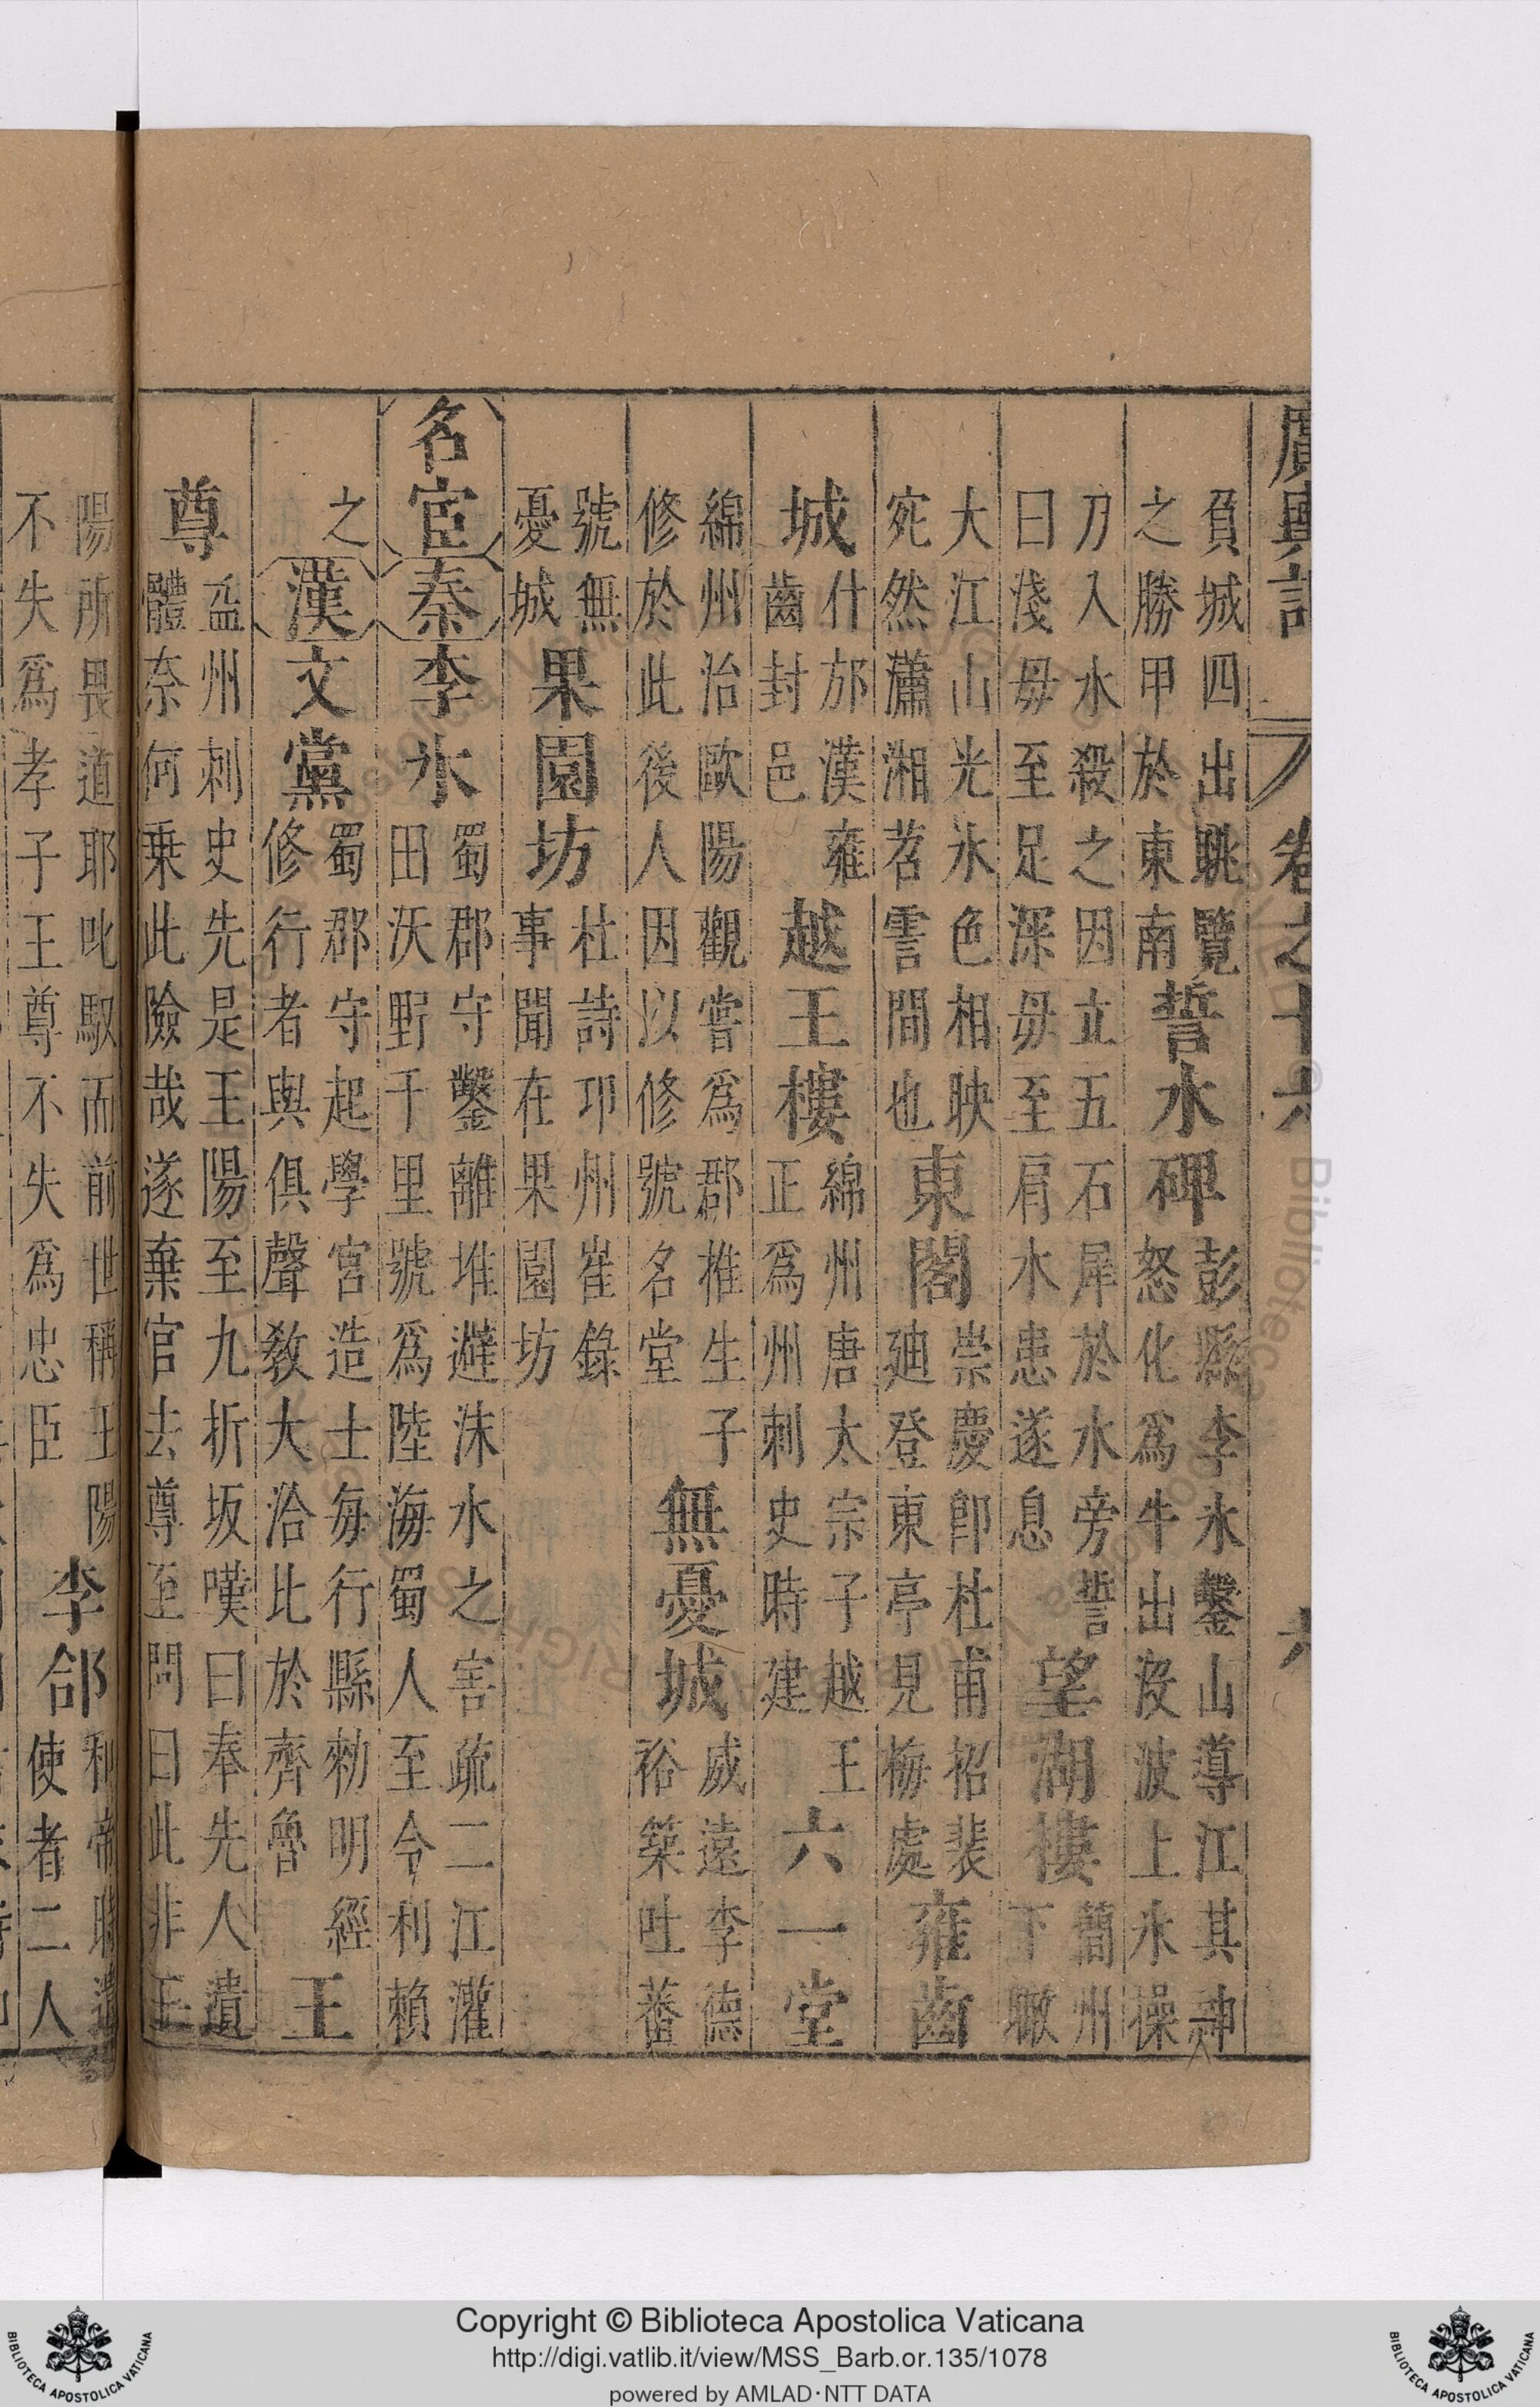 廣輿記 卷之十六 六
負城四出眺覽之勝甲於東南誓水碑彭縣李氷鑿山導江其神怒化爲牛出没波上氷操
刀入水殺之因立五石犀於水旁誓曰淺毋至足深毋至肩水患遂息望湖樓簡州下瞰
大江山光氷色相映宛然瀟湘苕霅間也東閣崇慶卽杜甫招裴廸登東亭見梅處雍齒
城什邡漢雍齒封邑越王樓綿州唐太宗子越王正爲州刺史時建六一堂
綿州治歐陽觀嘗爲郡推生子修於此後人因以修號名堂無憂城威遠李德裕築吐蕃
號無憂城果園坊杜詩卭州崔錄事聞在果園坊
名宦秦李氷蜀郡守鑿離堆避沫水之害疏二江灌田沃野千里號爲陸海蜀人至今利賴
之漢文黨蜀郡守起學宮造士每行縣勑明經修行者與俱聲教大洽比於齊魯王
尊益州刺史先是王陽至九折坂嘆曰奉先人遺體奈何乗此險哉遂棄官去尊至問曰此非王
陽所畏道耶叱馭而前世稱王陽不失爲孝子王尊不失爲忠臣李郃和帝時遣使者二人
Copyright © Biblioteca Apostolica Vaticana
http://digi.vatlib.it/view/MSS_Barb.or.135/1078
powered by AMLAD·NTT DATA
BIBLIOTECA APOSTOLICA VATICANA
BIBLIOTECA APOSTOLICA VATICANA